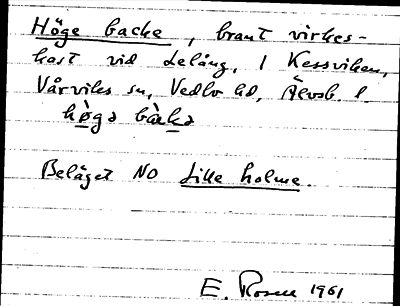 Höge backe, brant virkes-
kast vid Lelång, i Kessviken,
Vårviks sn, Vedbo hd, Älvsb. l.
hø̀gə bàkə
Beläget NO Lille holme.
E. Rosen 1961